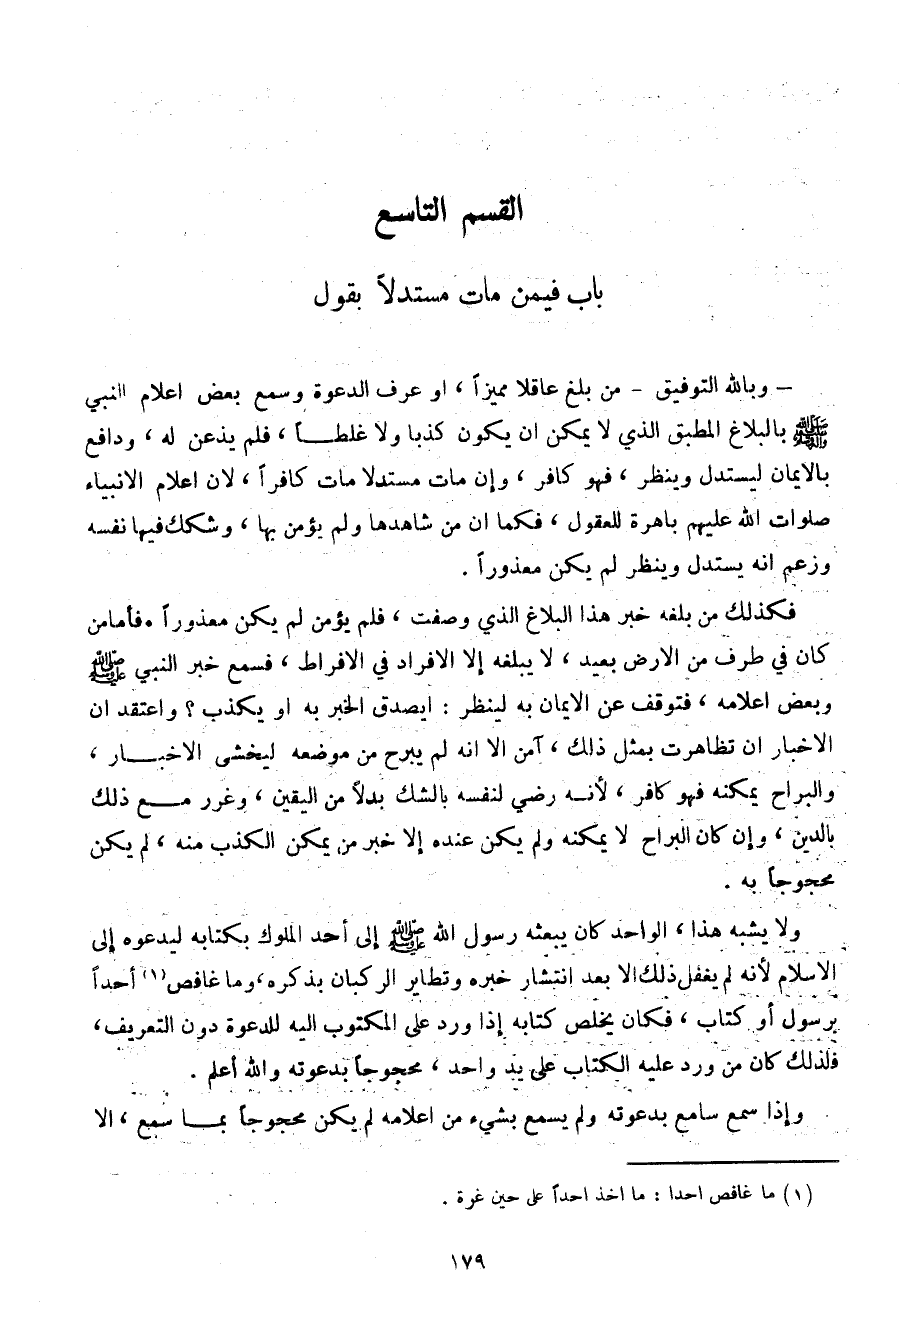 القسم التاسع
باب فيمن مات مستدلاً بقول
– وبالله التوفيق – من بلغ عاقلا مميزاً ، او عرف الدعوة وسمع بعض اعلام النبي
ﷺ بالبلاغ المطبق الذي لا يمكن ان يكون كذبا ولا غلطـــاً ، فلم يذعن له ، ودافع
بالايمان ليستدل وينظر ، فهو كافر ، وإن مات مستدلا مات كافراً ، لان اعلام الانبياء
صلوات الله عليهم باهرة للعقول ، فكما ان من شاهدها ولم يؤمن بها ، وشكك فيها نفسه
وزعم انه يستدل وينظر لم يكن معذوراً .
فكذلك من بلغه خبر هذا البلاغ الذي وصفت ، فلم يؤمن لم يكن معذوراً . فأما من
كان في طرف من الارض بعيد ، لا يبلغه إلا الافراد في الافراط ، فسمع خبر النبي ﷺ
وبعض اعلامه ، فتوقف عن الايمان به لينظر : ايصدق الخبر به او يكذب ؟ واعتقد ان
الاخبار ان تظاهرت بمثل ذلك ، آمن الا انه لم يبرح من موضعه ليخشى الاخبـــار ،
والبراح يمكنه فهو كافر ، لأنـه رضي لنفسه بالشك بدلاً من اليقين ، وغرر مـــع ذلك
بالدين ، وإن كان البراح لا يمكنه ولم يكن عنده إلا خبر من يمكن الكذب منه ، لم يكن
محجوجاً به .
ولا يشبه هذا ، الواحد كان يبعثه رسول الله ﷺ إلى أحد الملوك بكتابه ليدعوه إلى
الاسلام لأنه لم يغفل ذلك الا بعد انتشار خبره وتطاير الركبان بذكره ، وما غافص (١) أحداً
برسول أو كتاب ، فكان يخلص كتابه إذا ورد على المكتوب اليه للدعوة دون التعريف ،
فلذلك كان من ورد عليه الكتاب على يد واحد ، محجوجاً بدعوته والله أعلم .
وإذا سمع سامع بدعوته ولم يسمع بشيء من اعلامه لم يكن محجوجاً بمـــا سمع ، الا
(١) ما غافص احدا : ما اخذ احداً على حين غرة .
١٧٩